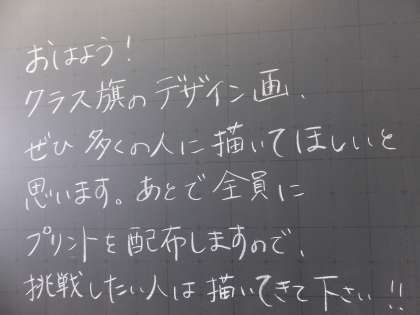 おはよう!
クラス旗のデザイン画、
ぜひ多くの人に描いてほしいと
思います。あとで全員に
プリントを配布しますので、
挑戦したい人は描いてきて下さい!!